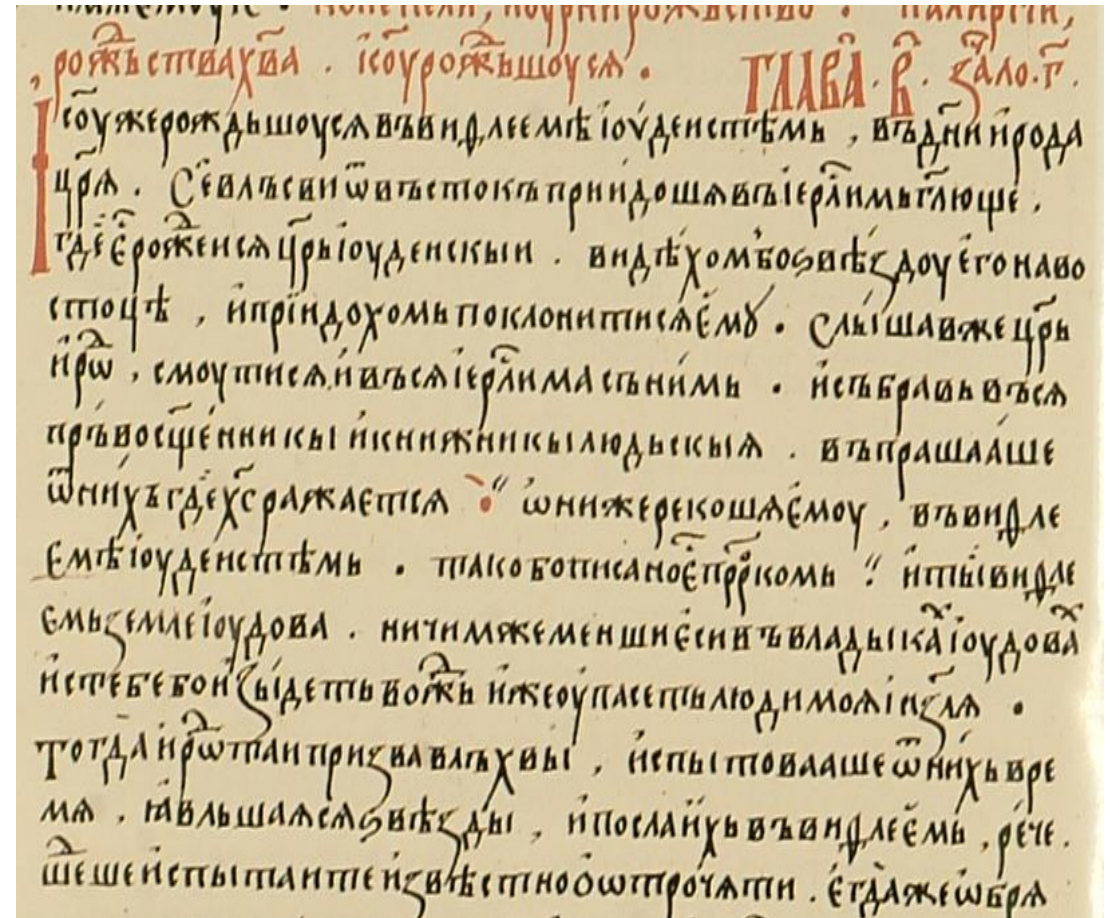 рож҃ьствах҃ва . ісоурож҃ьшоуся . ГЛАВА҃ . В҃ . зало . г҃ .
Ісоужерождьшоусѧвъвиѳлеемѣіоуденстѣмь , въдн҃иирода
цр҃ѧ . Се влъсвиѿвъстокъприидошѧвъіерл҃имъгл҃юще .
где е҃рож҃еисѧцр҃ьіоуденскыи . видѣхомбоѕвѣздоуегонаво
стоцѣ , ипріидохомьпоклонитисѧемꙋ . слышавжецр҃ь
ирѡ҃ , смоутисѧивъсѧіерл҃имасънимь . исъбравьвъсѧ
пръвосщ҃енникыикнижникылюдьскыѧ . въпрашааше
ѿнихъгдех҃сражаетсѧ : ѡнижерекошѧемоу , въвиѳле
емѣіоуденстѣмь . такобописаное҃прр҃комь : итывиѳле
емьземлеіоудова . ничимжеменшиесивъвладыкаіоудова
истебебоизыидетьвож҃ь ижеоупасетьлюдимоѧіиз҃лѧ .
Тогдаирѡ҃таипризвавлъхвы , испытоваашеѿнихьвре
мѧ , ꙗвльшаѧсѧѕвѣзды , ипославихьвъвиѳлеемь , рече .
шеⷣшеиспытаитеизвѣстнооѡтрочѧти . егдажеѡбрѧ